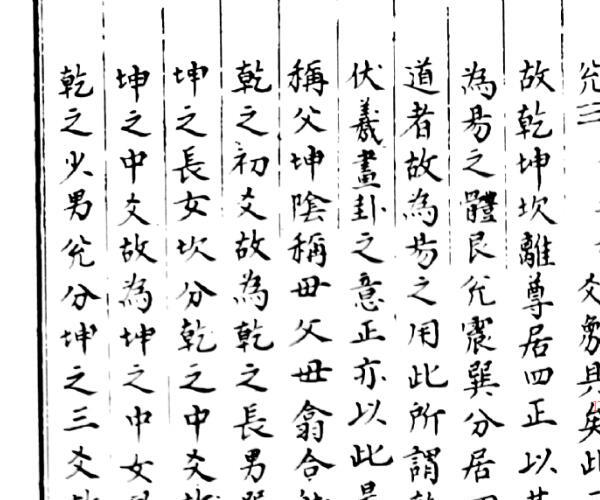 兊三爻象具矣此
故乾坤坎離尊居四正以其
為易之體艮兊震巽分居四
道者故為易之用此所謂乾
伏羲畫卦之意正亦以此
稱父坤陰稱毋父毋翕合
乾之初爻故為乾之長男巽
坤之長女坎分乾之中爻故
坤之中爻故為坤之中女艮
乾之少男兊分坤之三爻故